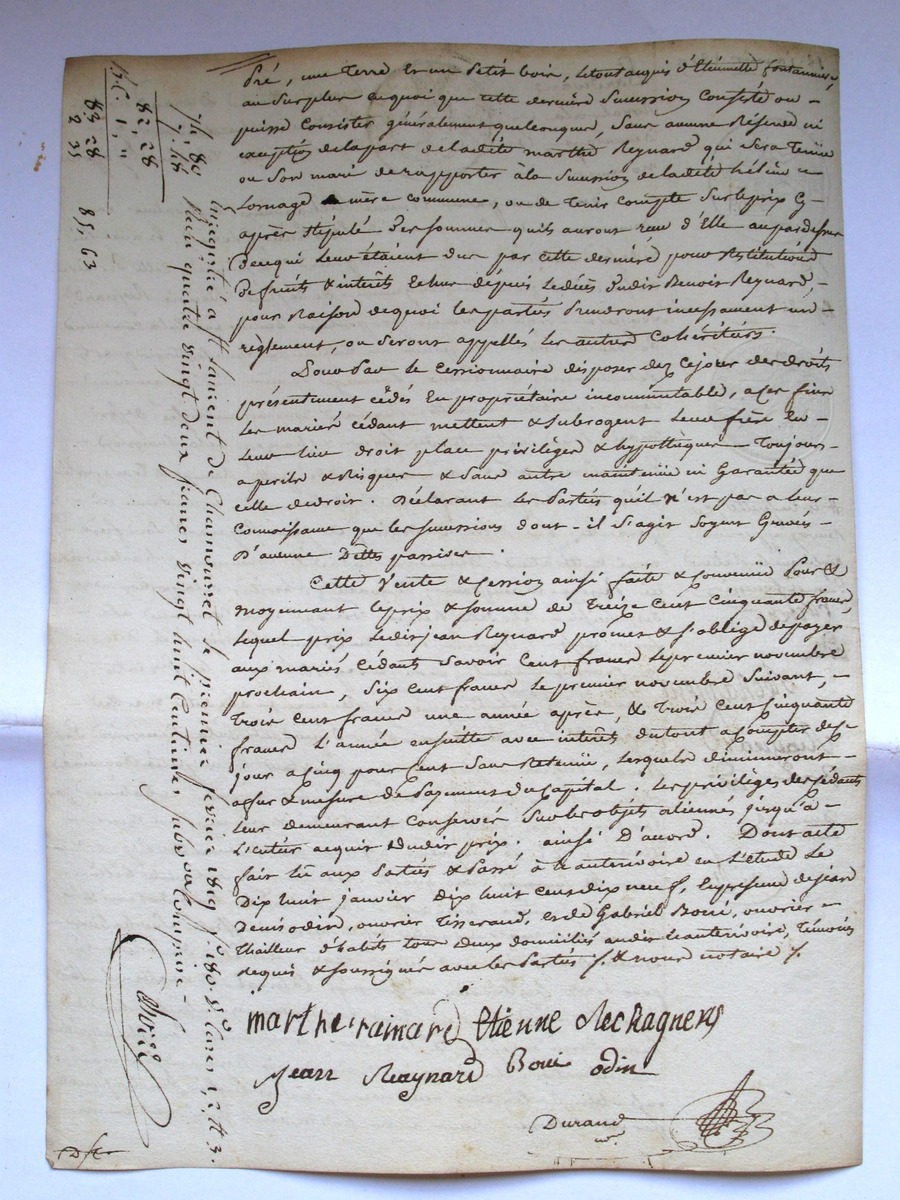 Pré, une Terre et un Petit bois, le tout acquis d'Etiennette fontannier,
au Surplus en quoi que cette derniere Succession Consiste ou -
puisse Consister généralement quelconques, Sans aucune Réserve ni
exception de la part de ladite marthe Reynard qui Sera Tenüe
ou Son mari de rapporter a la Succession de ladite hélène
mere commune, ou de Tenir Compte Sur le prix Cy-
après Stipulé des Sommes qu'ils auront recu d'Elle au par dessus
de ce qui leur étaient dus par cette derniere pour Restitutions
de fruits & intérêts Echus depuis le décès dudit Benoit Reynard,-
pour Raison de quoi les parties prendront incessament un -
règlement, ou Seront appellés les autres Cohéritiers.
Pour par le Cessionnaire disposer dez Cejour des droits
présentement cédés En propriétaire incommutable, a Ces fins
les mariés cédant mettent & Subrogent Leur frère En -
Leur lieu droit place privilége & hypotheque Toujours -
a perils & Risques & Sans autre maintenüe ni Garantie que
celle de droit. Déclarant les Parties qu'il n'est pas a leur -
Connoissance que les Successions dont - il S'agit Soyent Grevés -
D'aucune Dettes passives.
Cette Vente & Cession ainsi faite & Convenüe Pour &
moyennant le prix & Somme de Treize Cent Cinquante francs,
lequel prix ledit jean Reynard promet & S'oblige de payer
aux mariés Cédants Savoir Cent francs le premier novembre
prochain, Six Cent francs le premier novembre Suivant, -
Trois Cent francs une année après, & Trois Cent Cinquante
francs L'année ensuitte avec intérêts du tout a Compter de ce
jour a Cinq pour Cent Sans Retenüe, lesquels diminueront -
a fur & mesure de Payement du Capital. Les privileges des Cédants
leur demeurant Conservés Sur les objets aliennés jusqu'à -
L'entier acquit dudit prix. ainsi D'accord. Dont acte
fait lu aux Parties & Passé à en L'étude Le
Dix huit janvier Dix huit Cent dix neuf, En présence de jean
Denis odin, ouvrier Tisserand, et de Gabriel Boué, ouvrier -
Thailleur d'habits tous deux domiciliés audit Témoins
requis & Soussignés avec les Parties /. & nous notaire /.
marthe rainard Etienne
Jean Reynard Boué odin
Durand
Enregistré a St Laurent de Chamousset le premier fevrier 1819 f.º 180. Vº Cases 1, 2, et 3.
Reçu quatre vingt deux francs vingt huit Centimes Subvon Comprise -
74 80
7 : 48
82, 28
1 : "
83. 28
2 35
85, 63